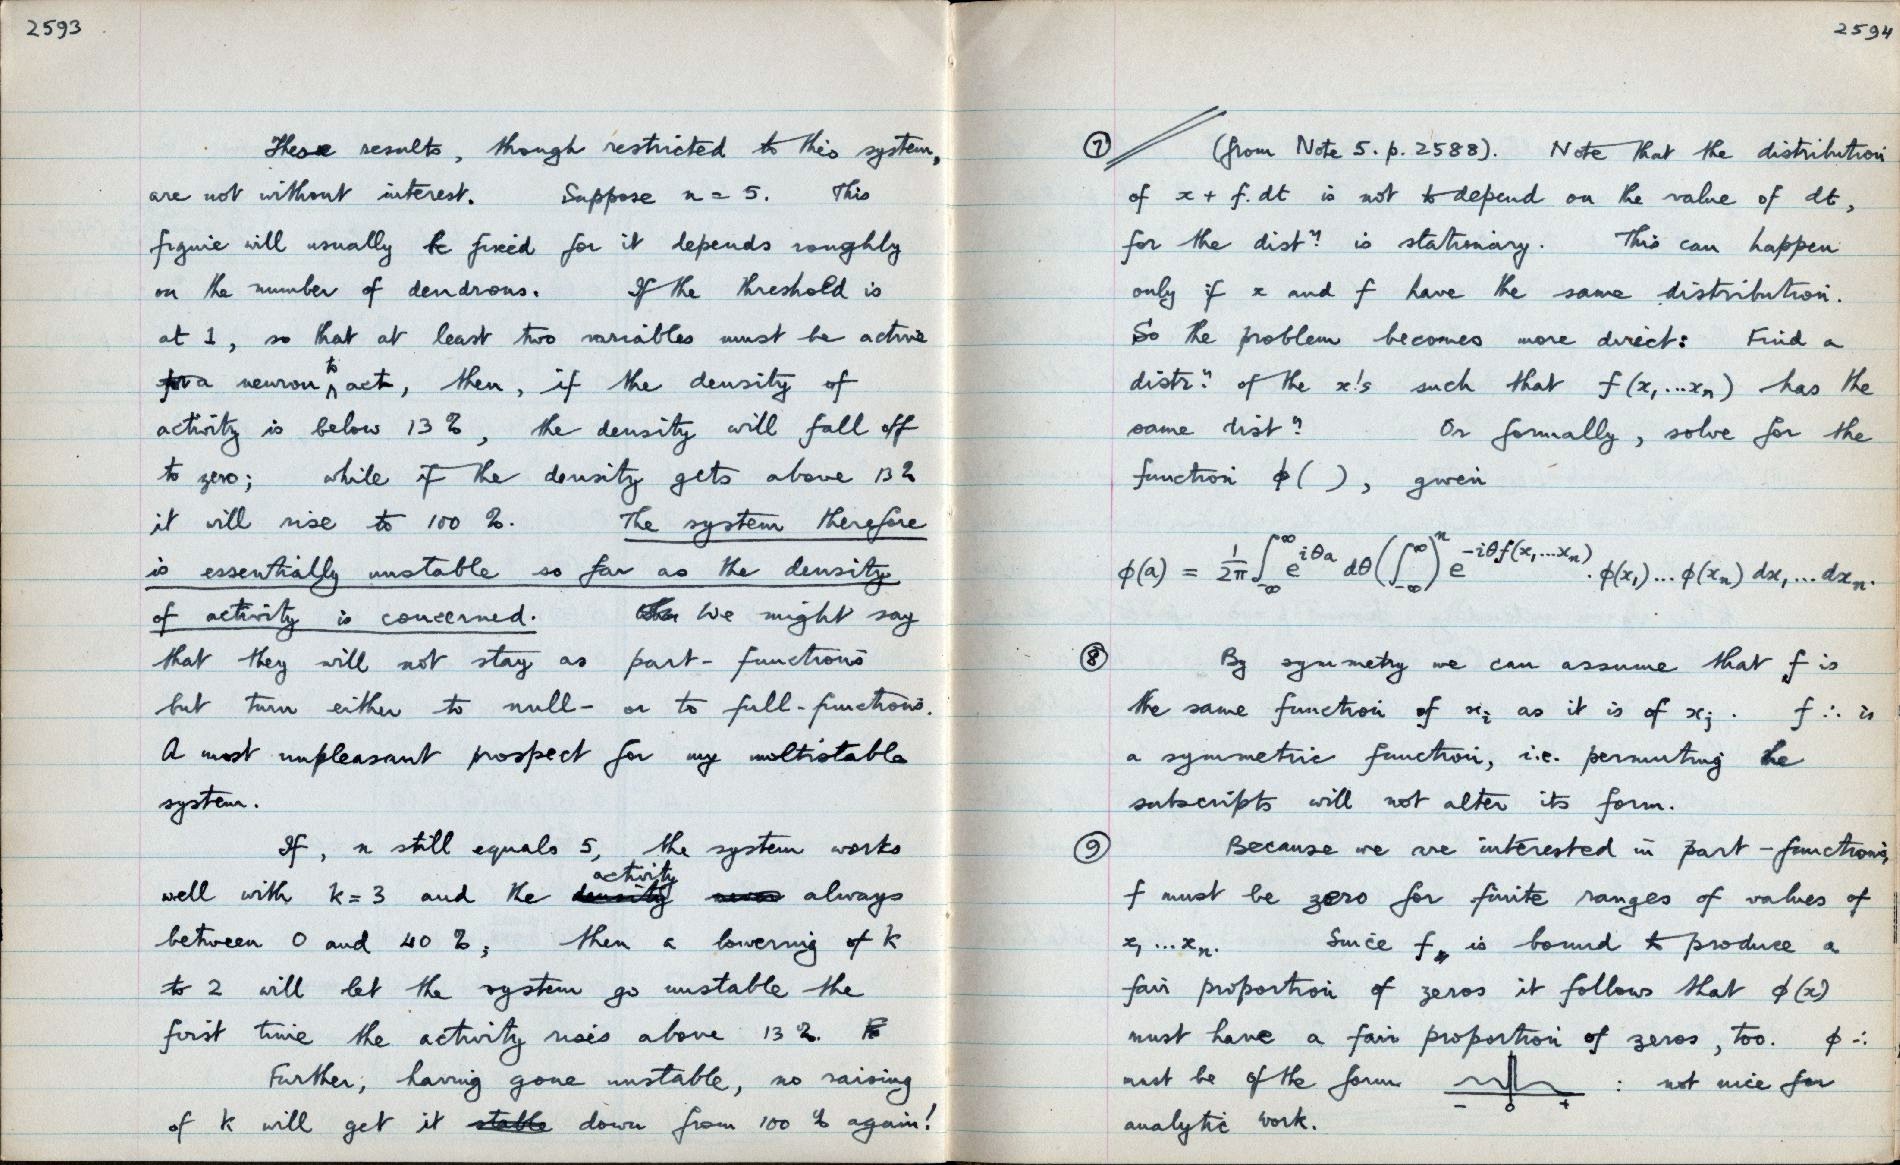 2593
These results, though restricted to this system,
are not without interest. Suppose n = 5. This
figure will usually be fixed for it depends roughly
on the number of dendrons. If the threshold is
at 1, so that at least two variables must be active
for a neuron to act, then, if the density of
activity is below 13 %, the density will fall off
to zero; while if the density gets above 13 %
it will rise to 100 %. The system therefore
is essentially unstable so far as the density
of activity is concerned. We might say
that they will not stay as part-functions
but turn either to null- or to full-functions.
A most unpleasant prospect for my multistable
system.
If, n still equals 5, the system works
well with k = 3 and the density activity never always
between 0 and 40 %; then a lowering of k
to 2 will let the system go unstable the
first time the activity rises above 13 %.
Further, having gone unstable, no raising
of k will get it stable down from 100 % again!
2594
⑦ (from Note 5. p. 2588). Note that the distribution
of x + f.dt is not to depend on the value of dt,
for the distⁿ is stationary. This can happen
only if x and f have the same distribution.
So the problem becomes more direct: Find a
distrⁿ of the x's such that f(x₁...xₙ) has the
same distⁿ. Or formally, solve for the
function ϕ( ), given
ϕ(a) = 1/2π ∫_{-∞}^{∞} e^{iθa} dθ (∫_{-∞}^{∞})^n e^{-iθf(x₁...xₙ)}. ϕ(x₁)...ϕ(xₙ) dx₁...dxₙ.
⑧ By symmetry we can assume that f is
the same function of xᵢ as it is of xⱼ. f ∴ is
a symmetric function, i.e. permuting the
subscripts will not alter its form.
⑨ Because we are interested in part-functions,
f must be zero for finite ranges of values of
x₁...xₙ. Since f is bound to produce a
fair proportion of zeros it follows that ϕ(x)
must have a fair proportion of zeros, too. ϕ ∴
must be of the form - 0 + : not nice for
analytic work.